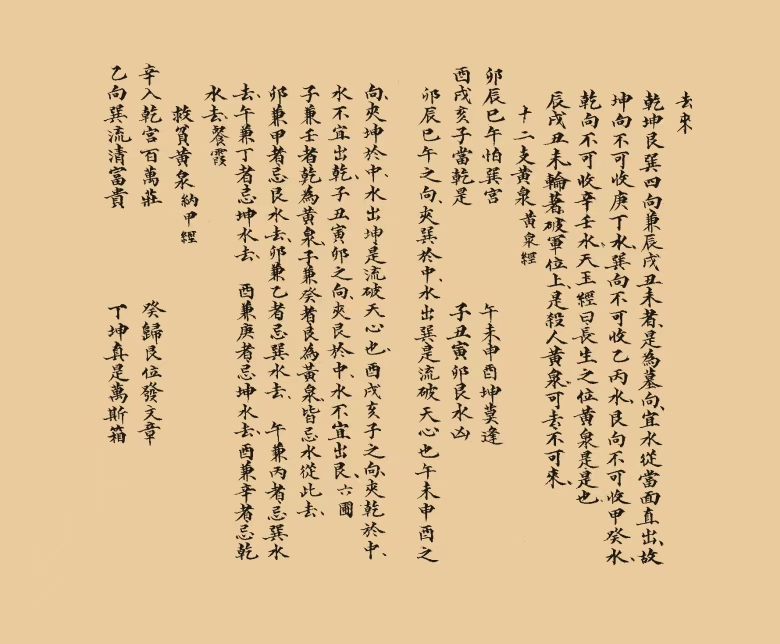 去來
乾坤艮巽四向兼辰戌丑未者、是為墓向、宜水從當面直出、故
坤向不可收庚丁水、巽向不可收乙丙水、艮向不可收甲癸水、
乾向不可收辛壬水、天玉經曰長生之位黃泉是是也
辰戌丑未輪著破軍位上、是殺人黃泉可去不可來、
十二支黃泉 黃泉經
卯辰巳午怕巽宮 午未申酉坤莫逢
酉戌亥子當乾是 子丑寅卯艮水凶
卯辰巳午之向、夾巽於中、水出巽是流破天心也午未申酉之
向、夾坤於中、水出坤是流破天心也、酉戌亥子之向、夾乾於中、
水不宜出乾、子丑寅卯之向、夾艮於中、水不宜出艮、六圃
子兼壬者乾為黃泉、子兼癸者艮為黃泉皆忌水從此去、
卯兼甲者忌艮水去、卯兼乙者忌巽水去、 午兼丙者忌巽水
去、午兼丁者忌坤水去、 酉兼庚者忌坤水去、酉兼辛者忌乾
水去、餐霞
救貧黃泉 納甲經
辛入乾宮百萬莊 癸歸艮位發文章
乙向巽流清富貴 丁坤真是萬斯箱